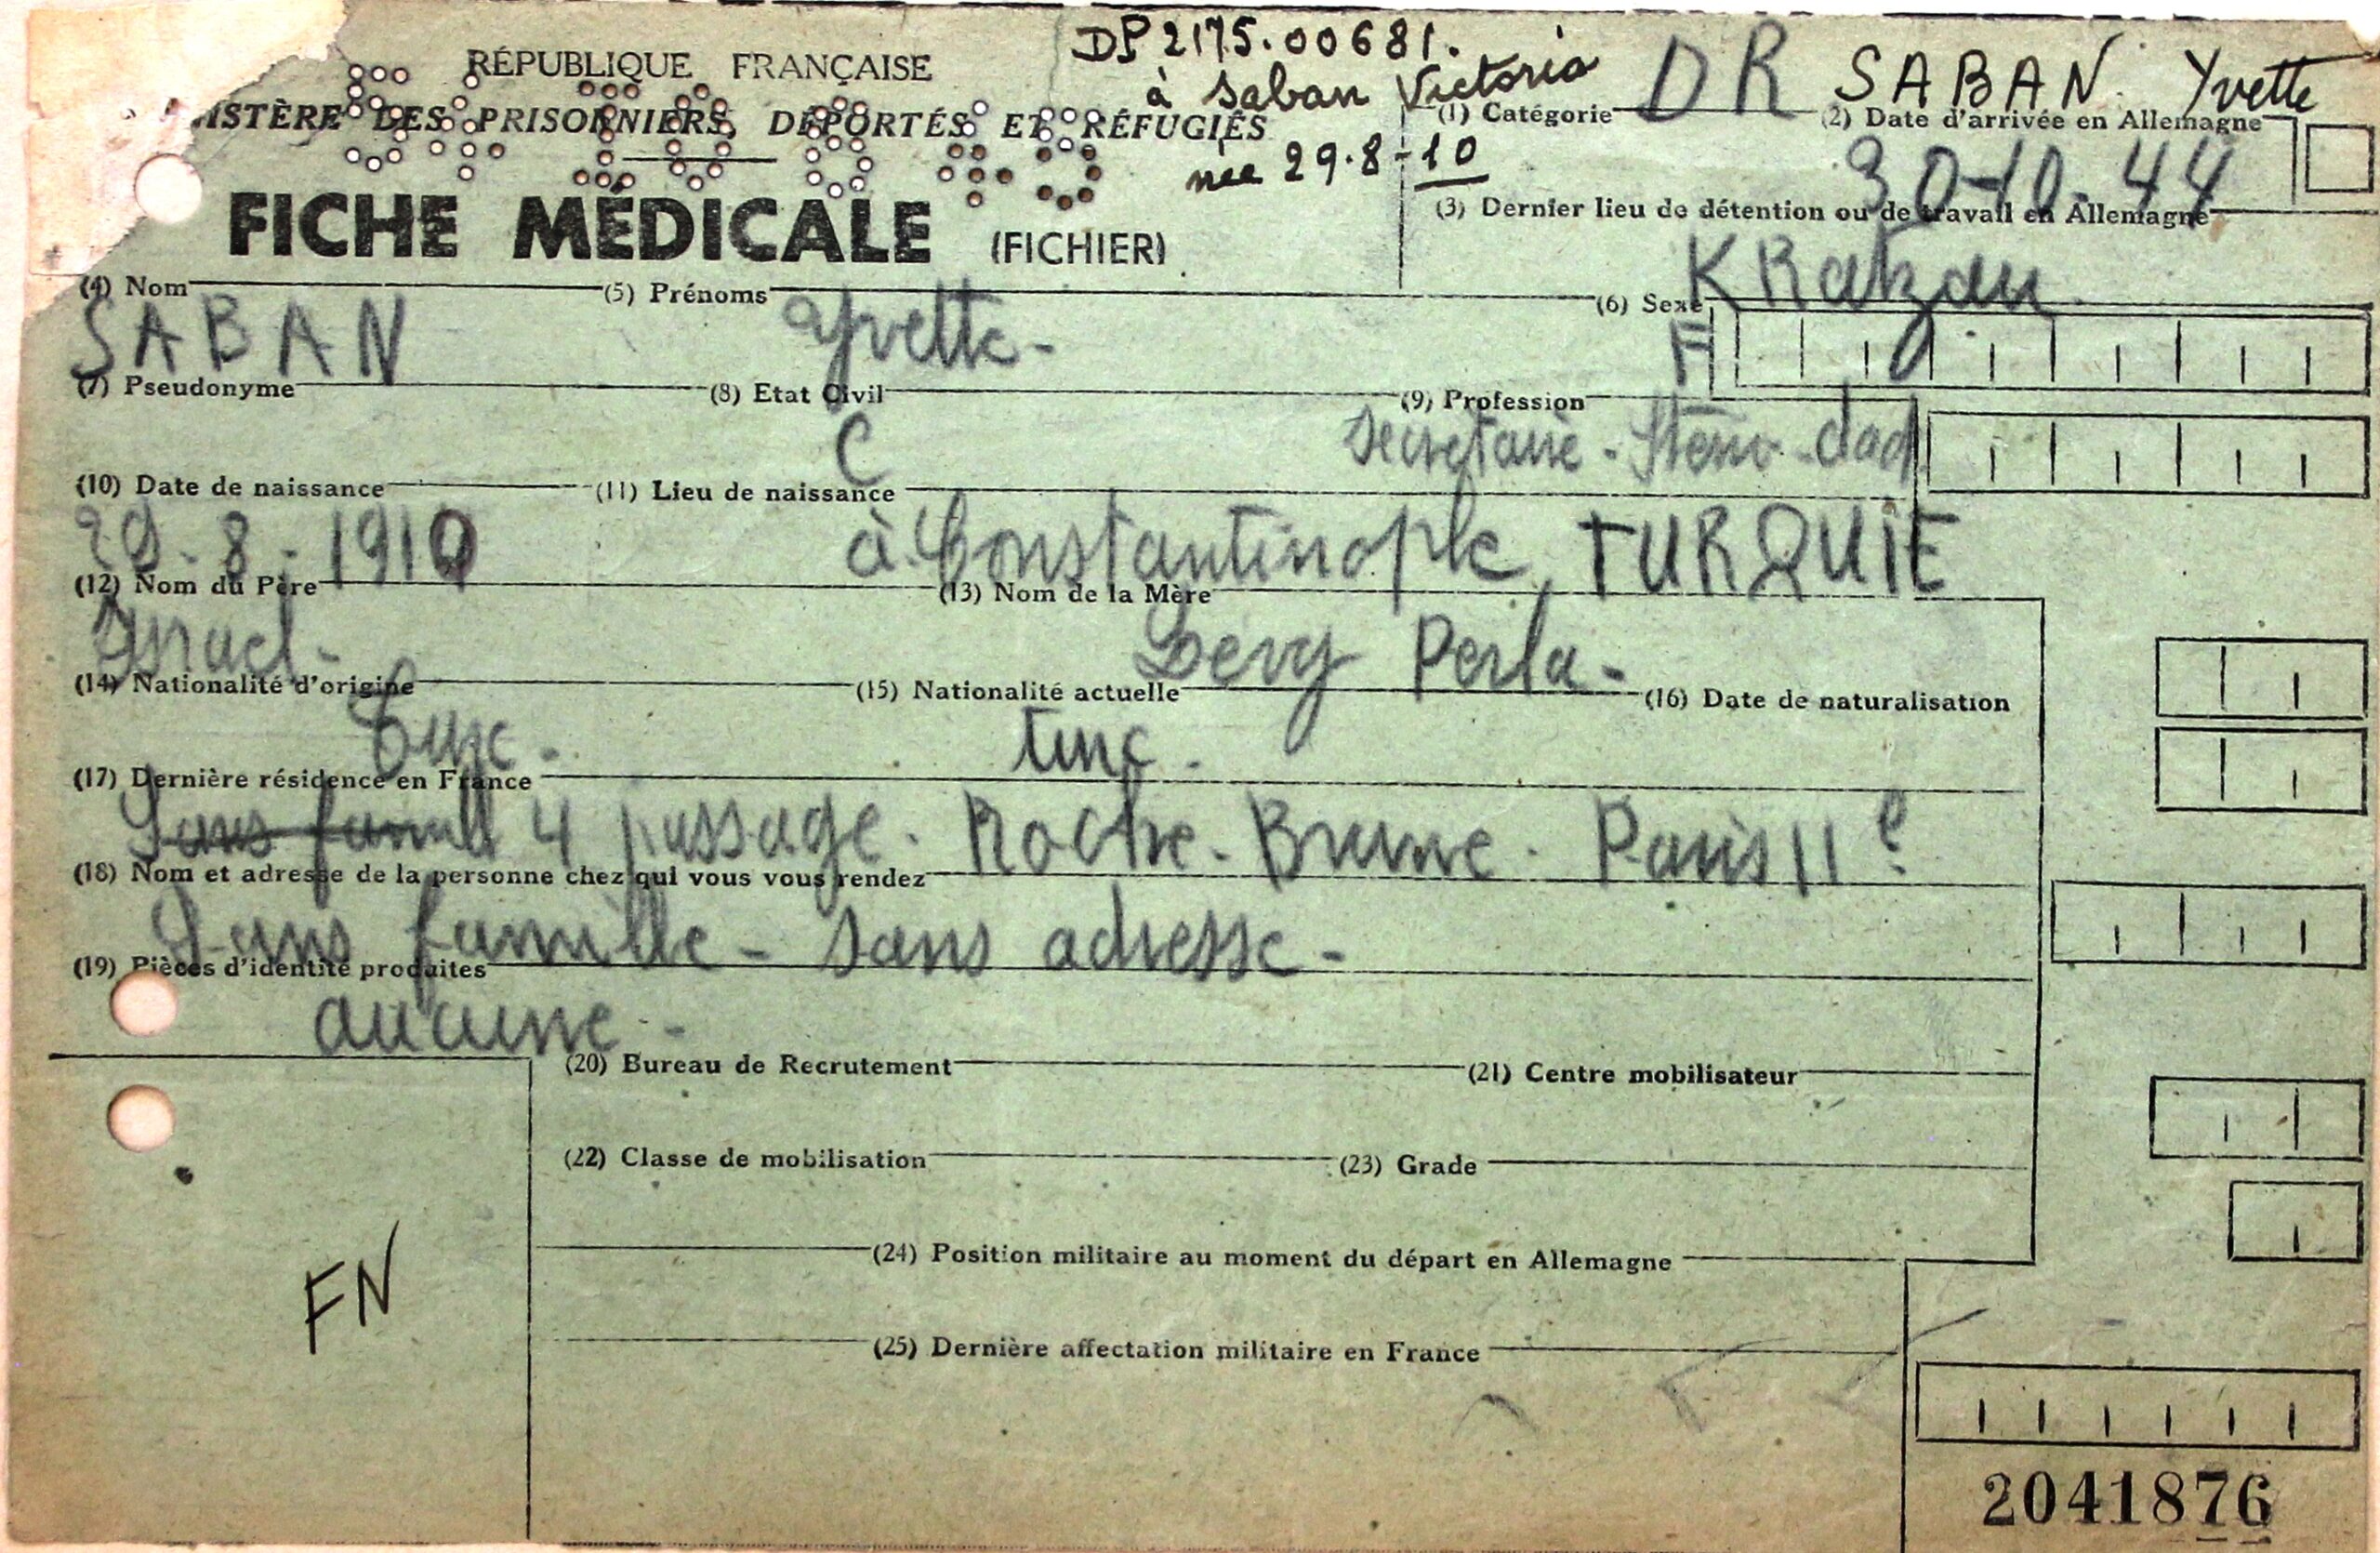 DP 2175.00681.
à Saban Victoria
née 29.8-10
RÉPUBLIQUE FRANÇAISE
ISTÈRE DES PRISONNIERS, DÉPORTÉS ET RÉFUGIÉS
FICHE MÉDICALE (FICHIER)
SABAN Yvette
(1) Catégorie DR
(2) Date d'arrivée en Allemagne
30-10-44
(3) Dernier lieu de détention ou de travail en Allemagne
KRatzau
(4) Nom (5) Prénoms (6) Sexe
SABAN Yvette- F
(7) Pseudonyme (8) Etat Civil (9) Profession
C Secretaire - Steno - dact
(10) Date de naissance (11) Lieu de naissance
29-8-1910 à Constantinople, TURQUIE
(12) Nom du Père (13) Nom de la Mère
Israel- Levy Perla-
(14) Nationalité d'origine (15) Nationalité actuelle (16) Date de naturalisation
turc- turc-
(17) Dernière résidence en France
Sans famill 4 passage. Roche-Brune. Paris 11e
(18) Nom et adresse de la personne chez qui vous vous rendez
Sans famille - sans adresse-
(19) Pièces d'identité produites
aucune-
(20) Bureau de Recrutement (21) Centre mobilisateur
(22) Classe de mobilisation (23) Grade
FN
(24) Position militaire au moment du départ en Allemagne
(25) Dernière affectation militaire en France
2041876